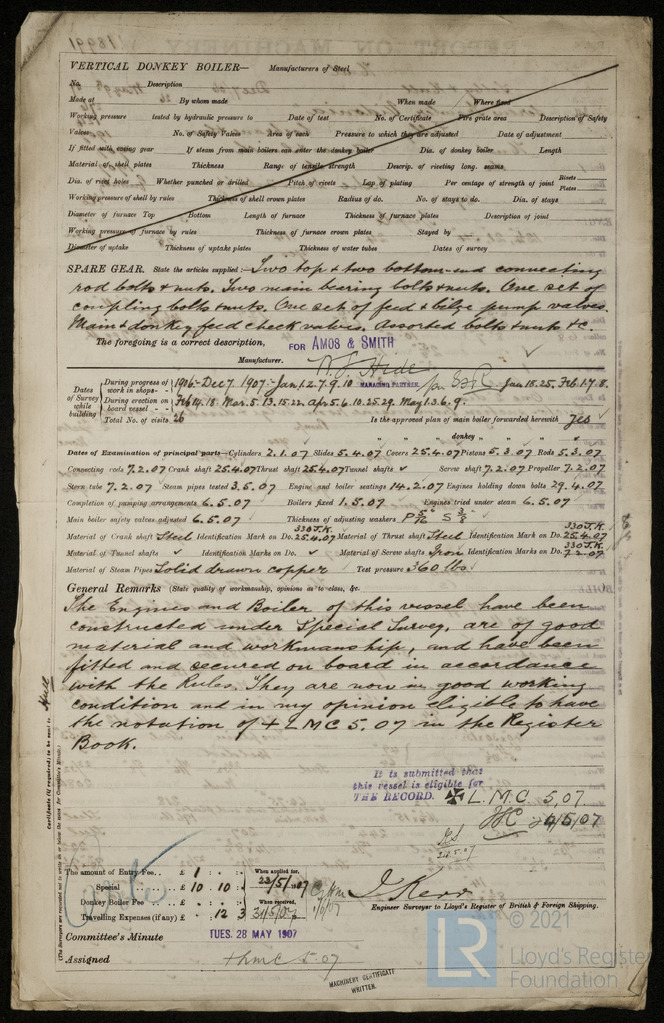 18991
VERTICAL DONKEY BOILER— Manufacturers of Steel
No. Description
Made at By whom made When made Where fixed
Working pressure tested by hydraulic pressure to Date of test No. of Certificate Fire grate area Description of Safety
Valves No. of Safety Valves Area of each Pressure to which they are adjusted Date of adjustment
If fitted with easing gear If steam from main boilers can enter the donkey boiler Dia. of donkey boiler Length
Material of shell plates Thickness Range of tensile strength Descrip. of riveting long. seams
Dia. of rivet holes Whether punched or drilled Pitch of rivets Lap of plating Per centage of strength of joint Rivets Plates
Working pressure of shell by rules Thickness of shell crown plates Radius of do. No. of stays to do. Dia. of stays
Diameter of furnace Top Bottom Length of furnace Thickness of furnace plates Description of joint
Working pressure of furnace by rules Thickness of furnace crown plates Stayed by
Diameter of uptake Thickness of uptake plates Thickness of water tubes Dates of survey
SPARE GEAR. State the articles supplied:— Two top & two bottom-end connecting
rod bolts & nuts. Two main bearing bolts & nuts. One set of
coupling bolts & nuts. One set of feed & bilge pump valves.
Main & donkey feed check valves. Assorted bolts & nuts &c.
The foregoing is a correct description, FOR AMOS & SMITH
Manufacturer. Hide MANAGING PARTNER.
Dates of Survey while building
During progress of work in shops - - 1906:- Dec 7 1907:- Jan. 1. 2. 7. 9. 10 Jan 18. 25. Feb. 1. 7. 8.
During erection on board vessel - - - Feb 14. 18. Mar. 5. 13. 15. 22. Apr. 5. 6. 10. 25. 29. May 1. 3. 6. 9.
Total No. of visits 26 Is the approved plan of main boiler forwarded herewith Yes
" " " donkey " " "
Dates of Examination of principal parts—Cylinders 2.1.07 Slides 5.4.07 Covers 25.4.07 Pistons 5.3.07 Rods 5.3.07
Connecting rods 7.2.07 Crank shaft 25.4.07 Thrust shaft 25.4.07 Tunnel shafts ✓ Screw shaft 7.2.07 Propeller 7.2.07
Stern tube 7.2.07 Steam pipes tested 3.5.07 Engine and boiler seatings 14.2.07 Engines holding down bolts 29.4.07
Completion of pumping arrangements 6.5.07 Boilers fixed 1.5.07 Engines tried under steam 6.5.07
Main boiler safety valves adjusted 6.5.07 Thickness of adjusting washers P 5/16 S 3/8
Material of Crank shaft Steel Identification Mark on Do. 330 J.K. 25.4.07 Material of Thrust shaft Steel Identification Mark on Do. 330 J.K. 25.4.07
Material of Tunnel shafts ✓ Identification Marks on Do. ✓ Material of Screw shafts Iron Identification Marks on Do. 330 J.K. 7.2.07
Material of Steam Pipes Solid drawn copper Test pressure 360 lbs.
General Remarks (State quality of workmanship, opinions as to class, &c.
The Engines and Boiler of this vessel have been
constructed under Special Survey, are of good
material and workmanship, and have been
fitted and secured on board in accordance
with the Rules. They are now in good working
condition and in my opinion eligible to have
the notation of + LMC 5.07 in the Register
Book.
Certificate (if required) to be sent to Hull
(The Surveyors are requested not to write on or below the space for Committee's Minute.)
It is submitted that
this vessel is eligible for
THE RECORD. ✠ L.M.C. 5,07
24.5.07
The amount of Entry Fee.. £ 1 : : When applied for,
Special .. £ 10 : 10 : 23/5/1907
Donkey Boiler Fee .. £ : : When received,
Travelling Expenses (if any) £ : 12 : 3 31/5/07
J. Kerr
Engineer Surveyor to Lloyd's Register of British & Foreign Shipping.
Committee's Minute TUES. 28 MAY 1907
Assigned + LMC 5.07
MACHINERY CERTIFICATE
WRITTEN.
LR
© 2021
Lloyd's Register
Foundation